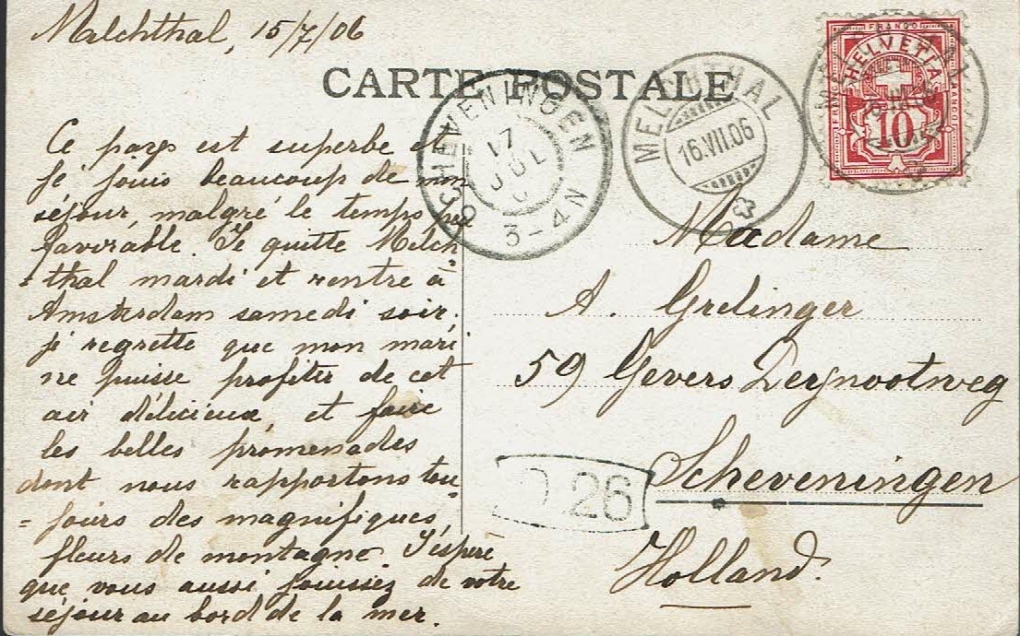 Melchthal, 15/7/06
CARTE POSTALE
FRANCO
HELVETIA
FRANCO
FRANCO
10
SCHEVENINGEN
17
JUL
3-4N
MELCHTHAL
16.VII.06
Ce pays est superbe et
je jouis beaucoup de mon
séjour, malgré le temps peu
favorable. Je quitte Melch-
=thal mardi et rentre à
Amsterdam samedi soir.
je regrette que mon mari
ne puisse profiter de cet
air délicieux, et faire
les belles promenades
dont nous rapportons tou-
=jours des magnifiques
fleurs de montagne. J'espère
que vous aussi jouissez de votre
séjour au bord de la mer.
Madame
A. Grelinger
59 Gevers Deynootweg
Scheveningen
Holland.
26